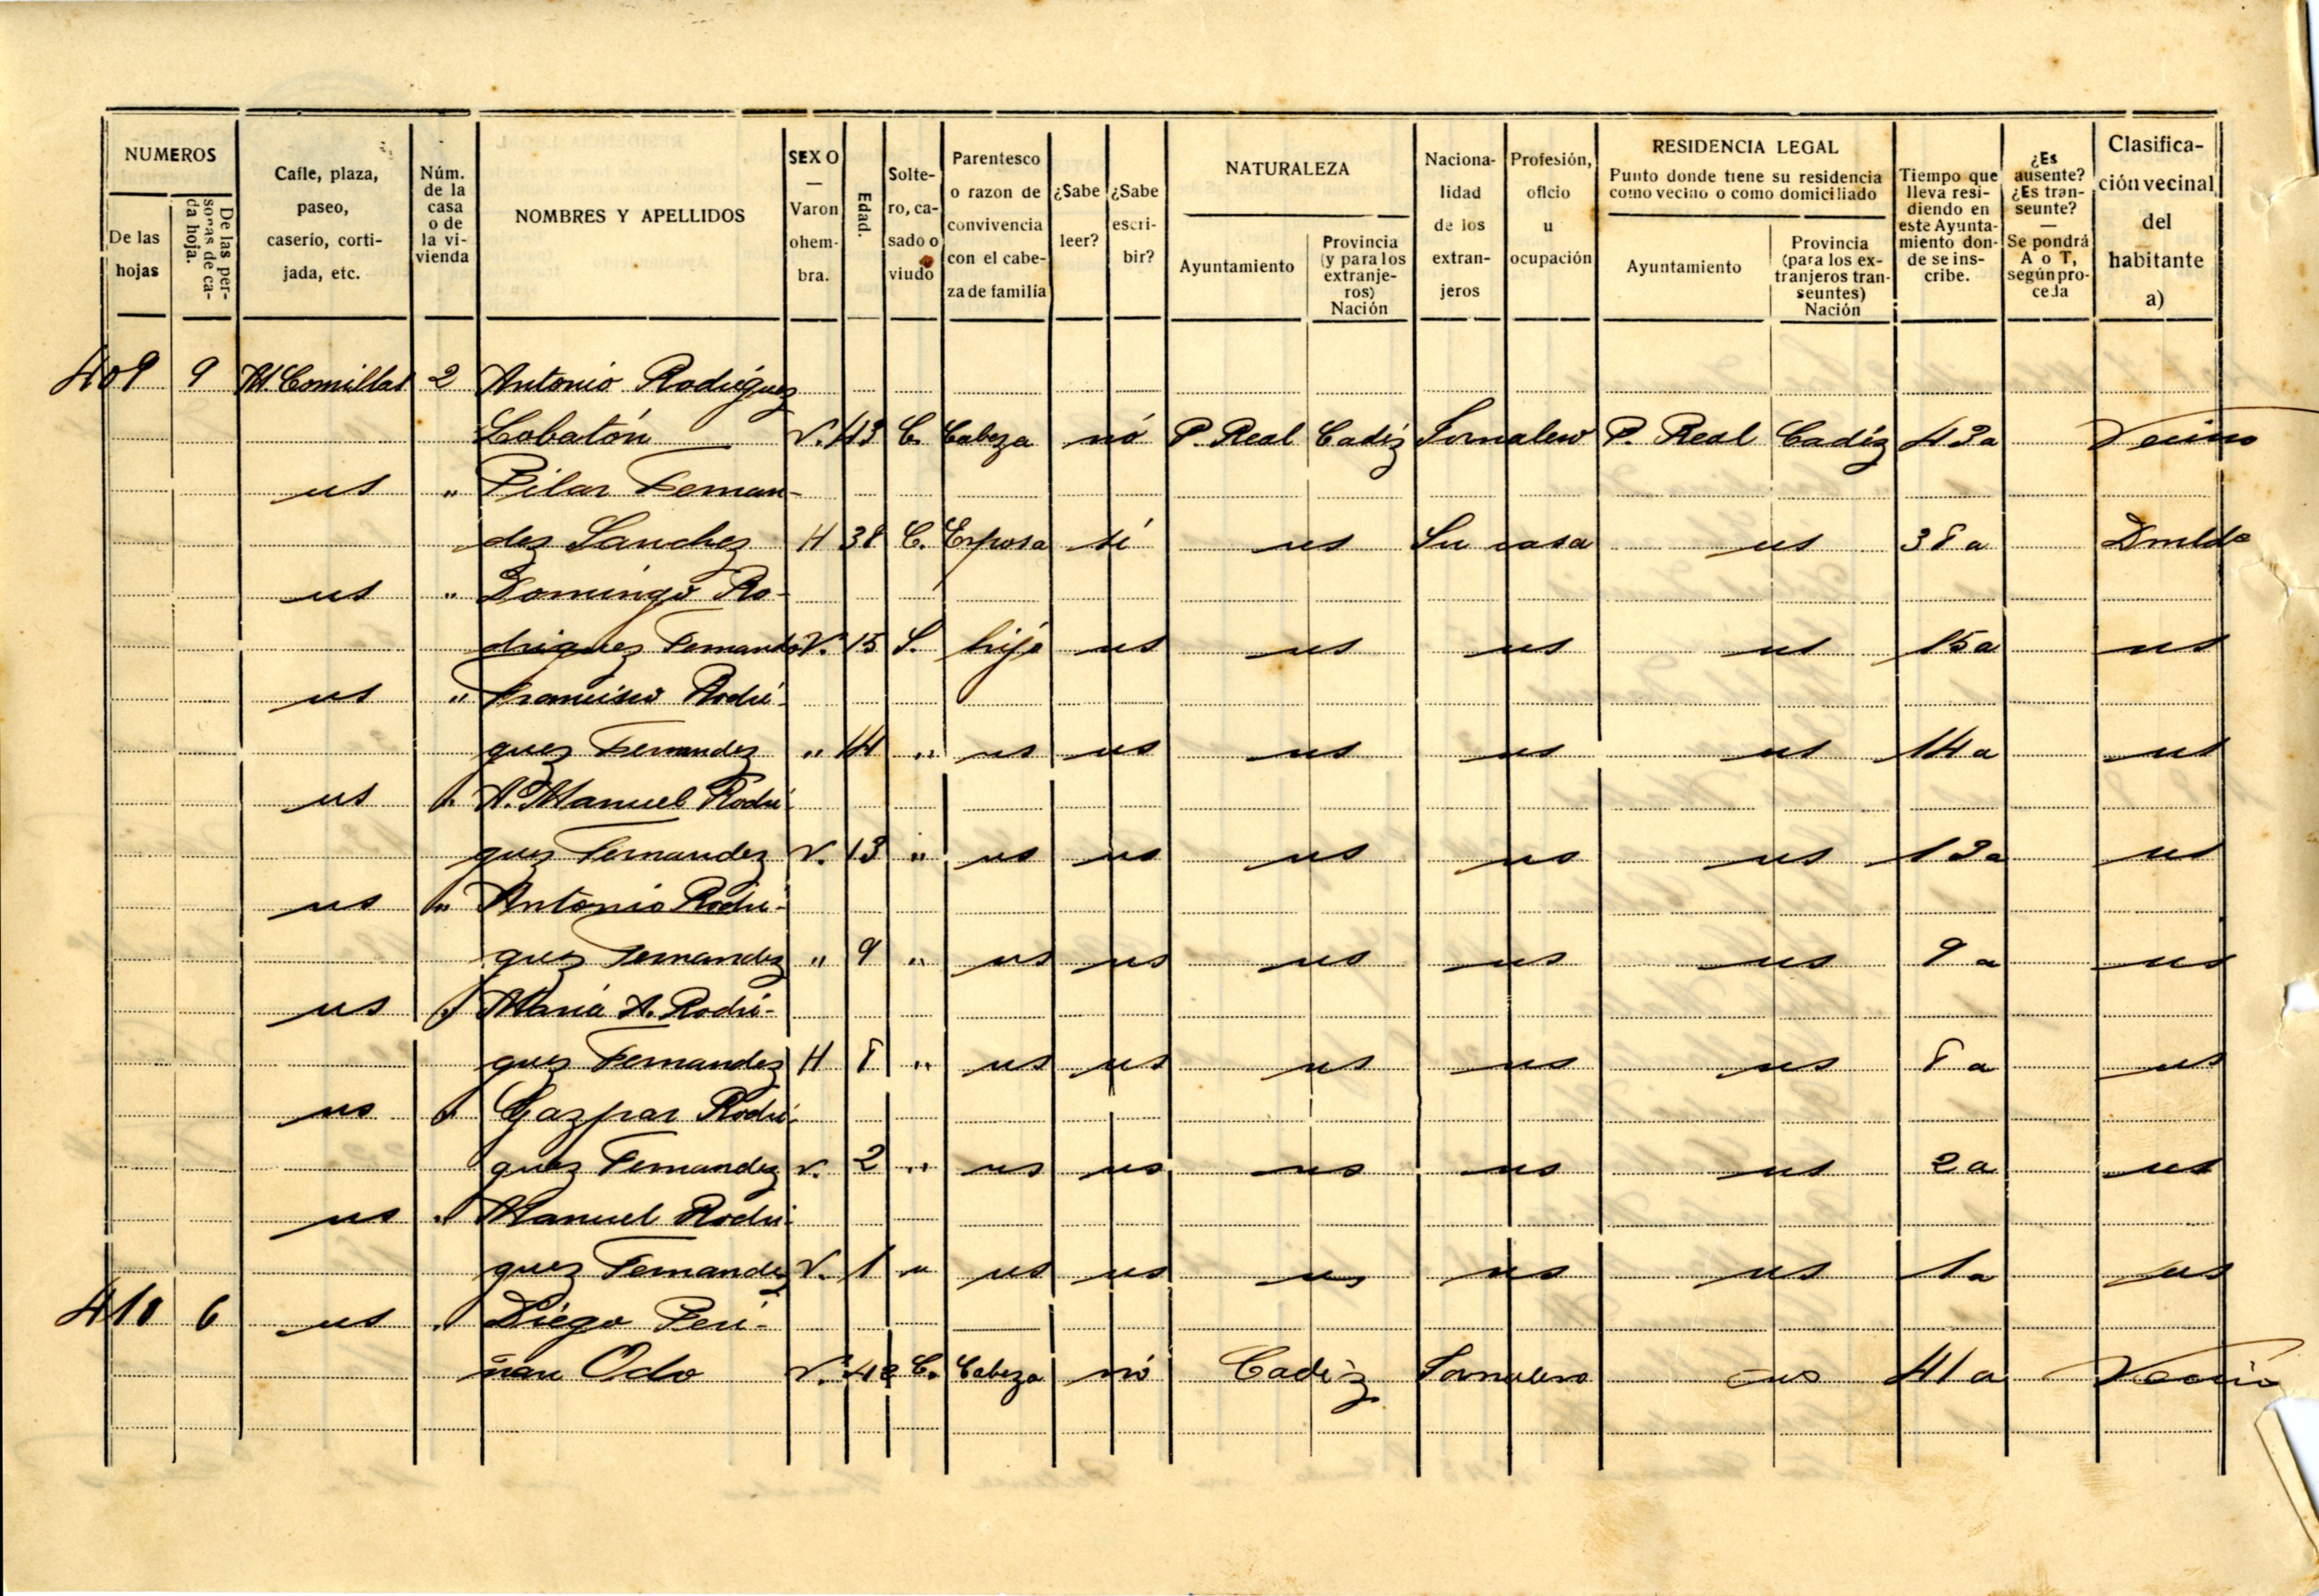 NUMEROS
De las hojas
De las personas de cada hoja.
Calle, plaza, paseo, caserío, cortijada, etc.
Núm. de la casa o de la vivienda
NOMBRES Y APELLIDOS
SEXO — Varon ohembra.
Edad.
Soltero, casado o viudo
Parentesco o razon de convivencia con el cabeza de familia
¿Sabe leer?
¿Sabe escribir?
NATURALEZA
Ayuntamiento
Provincia (y para los extranjeros) Nación
Nacionalidad de los extranjeros
Profesión, oficio u ocupación
RESIDENCIA LEGAL
Punto donde tiene su residencia como vecino o como domiciliado
Ayuntamiento
Provincia (para los extranjeros transeuntes) Nación
Tiempo que lleva residiendo en este Ayuntamiento donde se inscribe.
¿Es ausente? ¿Es transeunte? — Se pondrá A o T, según proceda
Clasificación vecinal del habitante a)
409 9 M. Comillas 2 Antonio Rodríguez
Lobatón V. 43 C. Cabeza nó P. Real Cadiz Jornalero P. Real Cadiz 43a Vecino
us " Pilar Fernan-
dez Sanchez H 38 C. Esposa sí us Su casa us 38 a Dmldo
us " Domingo Ro-
driguez Fernandez V. 15 S. hijo us us us us 15a us
us " Francisco Rodri-
guez Fernandez " 14 " us us us us us 14a us
us " A. Manuel Rodri-
guez Fernandez V. 13 " us us us us us 13a us
us " Antonio Rodri-
guez Fernandez " 9 " us us us us us 9 a us
us " María A. Rodri-
guez Fernandez H 8 " us us us us us 8 a us
us " Gazpar Rodri-
guez Fernandez V. 2 " us us us us us 2a us
us " Manuel Rodri-
guez Fernandez V. 1 " us us us us us 1a us
410 6 us " Diego Peri-
ñan Odo V. C. Cabeza nó Cadiz Jornalero us 41a Vecino